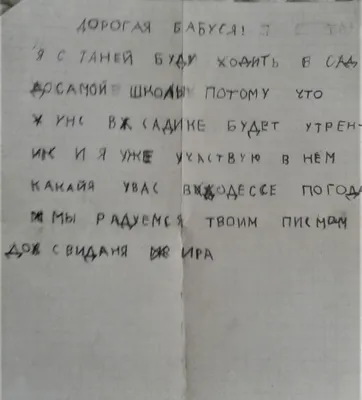 ДОРОГАЯ БАБУСЯ!
Я С ТАНЕЙ БУДУ ХОДИТЬ В САД
ДО САМОЙ ШКОЛЫ ПОТОМУ ЧТО
У НС В САДИКЕ БУДЕТ УТРЕН-
ИК И Я УЖЕ УЧАСТВУЮ В НЁМ
КАКАЙЯ УВАС В ОДЕССЕ ПОГОДА
МЫ РАДУЕМСЯ ТВОИМ ПИСМОМ
ДО СВИДАНЯ ИРА